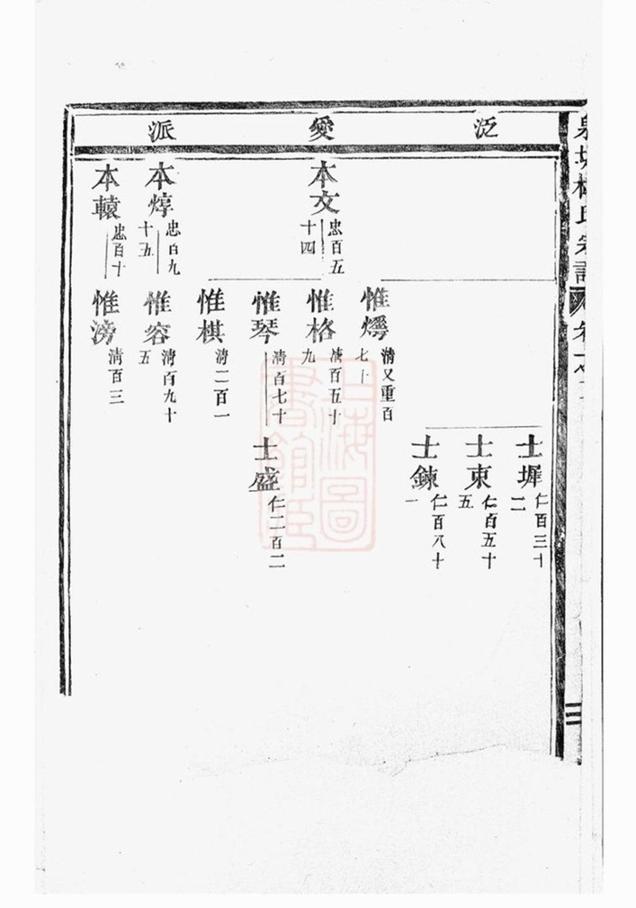 泛愛派
士墀 仁百三十二
士東 仁百五十五
士鍊 仁百八十一
惟㷼 清又重百七十
本文 忠百五十四
惟格 清百五十九
惟琴 清百七十
士盛 仁二百二
惟棋 清二百一
本焞 忠百九十五
惟容 清百九十五
本轅 忠百十
惟滂 清百三
上海圖書館藏